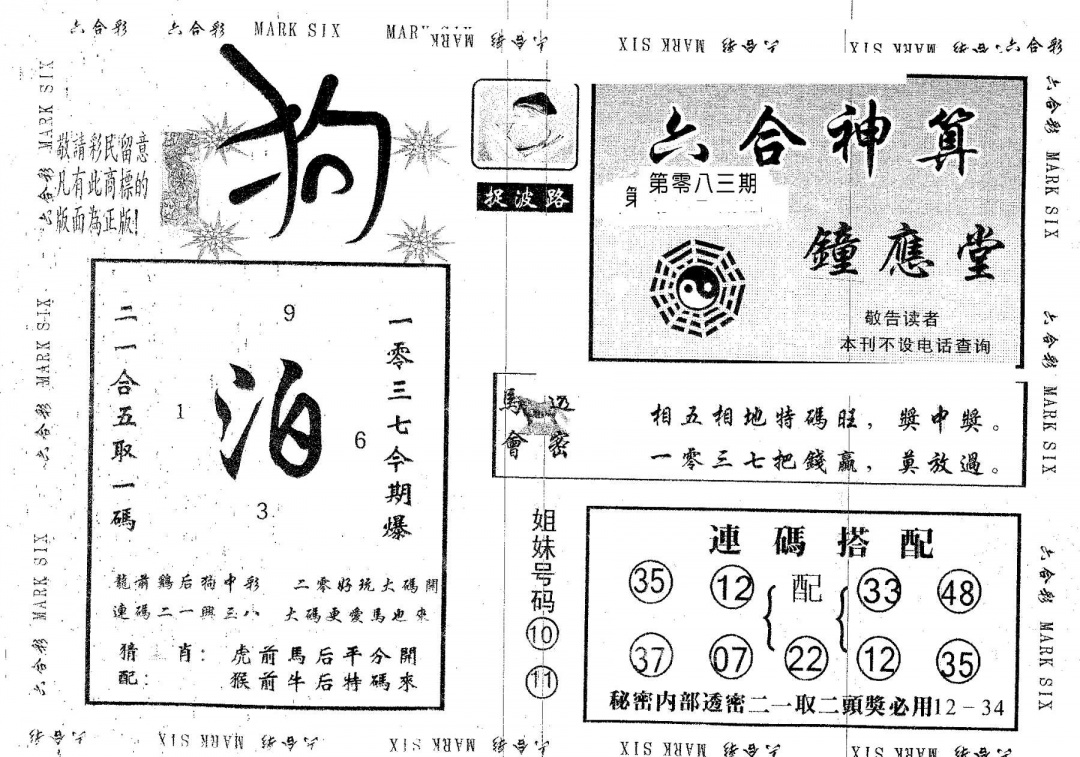 六合彩 六合彩 MARK SIX MARK SIX 六合彩 六合彩 MARK SIX 六合彩 MARK SIX 六合彩
狗
敬請彩民留意
凡有此商標的
版面為正版!
捉波路
六合神算
第零八三期
鐘應堂
敬告读者
本刊不设电话查询
二一合五取一碼
9
1
泊
6
3
一零三七今期爆
龍前鷄后狗中彩 二零好玩大碼開
連碼二一興三八 大碼更愛馬也來
猜肖: 虎前馬后平分開
配: 猴前牛后特碼來
馬會透密
相五相地特碼旺,獎中獎。
一零三七把錢贏,莫放過。
姐妹号码
10
11
連碼搭配
35 12 配 33 48
37 07 22 12 35
秘密内部透密二一取二頭獎必用12-34
六合彩 MARK SIX 六合彩 MARK SIX 六合彩 MARK SIX
六合彩 MARK SIX 六合彩 MARK SIX 六合彩 MARK SIX
六合彩 MARK SIX 六合彩 MARK SIX 六合彩 MARK SIX 六合彩 MARK SIX 六合彩